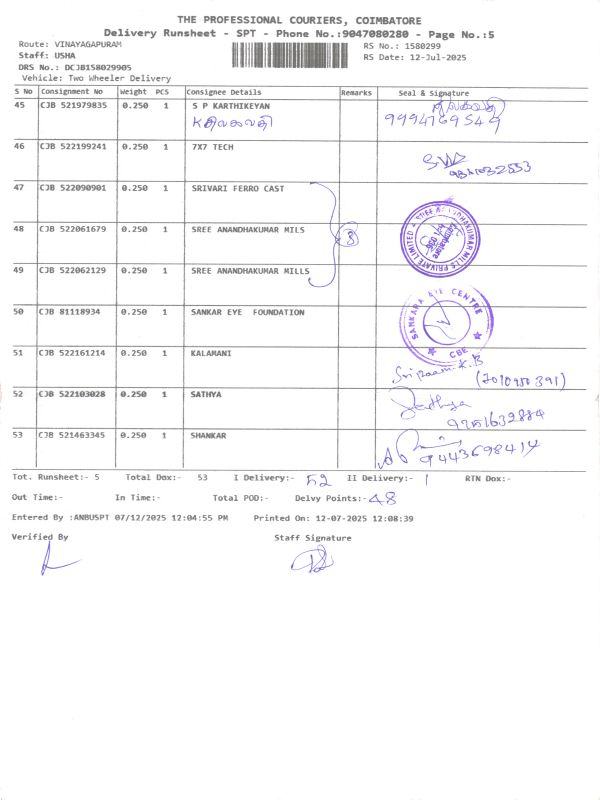 THE PROFESSIONAL COURIERS, COIMBATORE
Delivery Runsheet - SPT - Phone No.:9047080280 - Page No.:5
Route: VINAYAGAPURAM
RS No.: 1580299
Staff: USHA
RS Date: 12-Jul-2025
DRS No.: DCJB158029905
Vehicle: Two Wheeler Delivery
S No Consignment No Weight PCS Consignee Details Remarks Seal & Signature
45 CJB 521979835 0.250 1 S P KARTHIKEYAN
9994769549
46 CJB 522199241 0.250 1 7X7 TECH
47 CJB 522090901 0.250 1 SRIVARI FERRO CAST
48 CJB 522061679 0.250 1 SREE ANANDHAKUMAR MILS 3
49 CJB 522062129 0.250 1 SREE ANANDHAKUMAR MILLS
50 CJB 81118934 0.250 1 SANKAR EYE FOUNDATION
SANKARA EYE CENTRE
CBE
51 CJB 522161214 0.250 1 KALAMANI
Sriraam.K.B
(7010950391)
52 CJB 522103028 0.250 1 SATHYA
Sathya
9751632884
53 CJB 521463345 0.250 1 SHANKAR
9443698414
Tot. Runsheet:- 5 Total Dox:- 53 I Delivery:- 52 II Delivery:- 1 RTN Dox:-
Out Time:- In Time:- Total POD:- Delvy Points:- 48
Entered By :ANBUSPT 07/12/2025 12:04:55 PM Printed On: 12-07-2025 12:08:39
Verified By Staff Signature